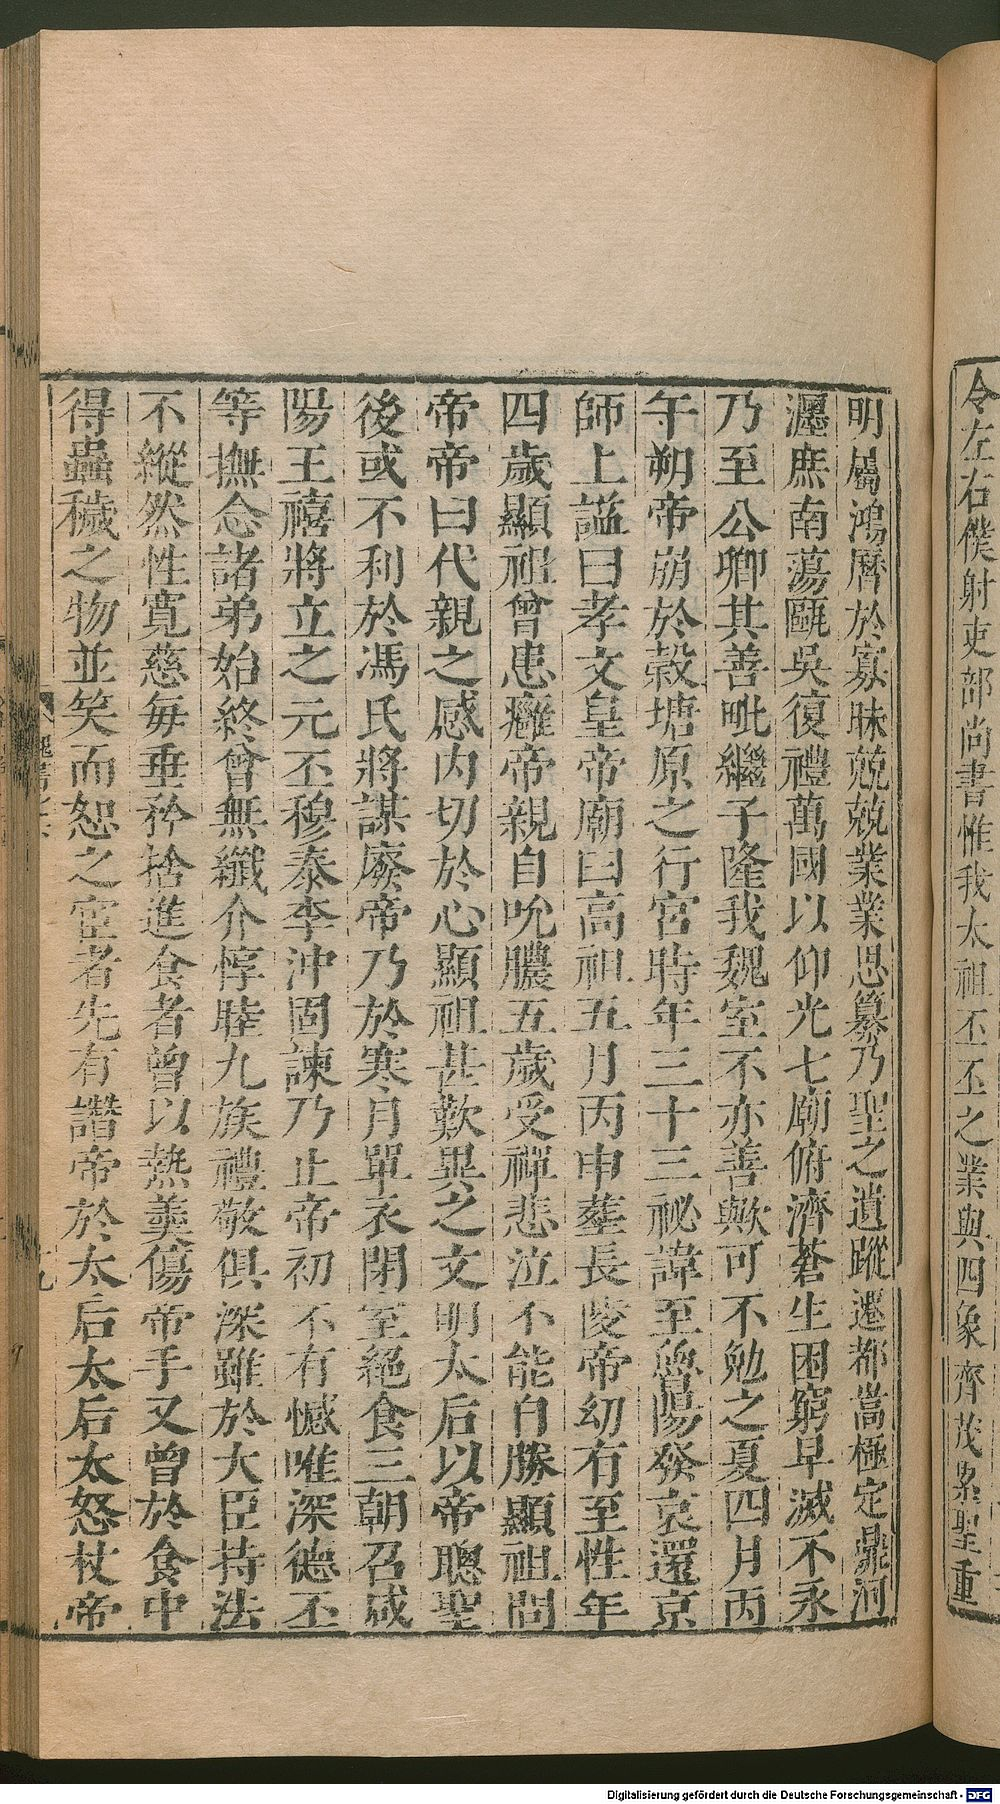 令左右僕射吏部尚書惟我太祖丕丕之業與四象齊茂累聖重
明屬鴻曆於寡昧兢兢業業思纂乃聖之遺蹤遷都嵩極定鼎河
瀍庶南蕩甌吳復禮萬國以仰光七廟俯濟蒼生困窮早滅不永
乃至公卿其善毗繼子隆我魏室不亦善歟可不勉之夏四月丙
午朔帝崩於榖塘原之行宮時年三十三祕諱至魯陽發哀還京
師上謚曰孝文皇帝廟曰高祖五月丙申葬長陵帝幼有至性年
四歲顯祖曾患癰帝親自吮膿五歲受禪悲泣不能自勝顯祖問
帝帝曰代親之感內切於心顯祖甚歎異之文明太后以帝聰聖
後或不利於馮氏將謀廢帝乃於寒月單衣閉室絕食三朝召咸
陽王禧將立之元丕穆泰李沖固諫乃止帝初不有憾唯深德丕
等撫念諸弟始終曾無纖介惇睦九族禮敬俱深雖於大臣持法
不縱然性寬慈每垂矜捨進食者曾以熱羹傷帝手又曾於食中
得蟲穢之物並笑而恕之宦者先有譖帝於太后太后太怒杖帝
魏書
九
Digitalisierung gefördert durch die Deutsche Forschungsgemeinschaft - DFG